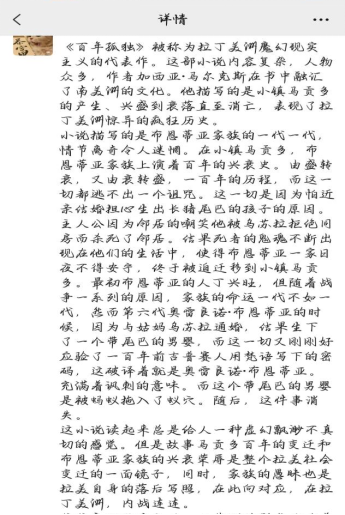 详情
《百年孤独》被称为拉丁美洲魔幻现实
主义的代表作。这部小说内容复杂,人物
众多,作者加西亚·马尔克斯在书中融汇
了南美洲的文化。他描写的是小镇马贡多
的产生、兴盛到衰落直至消亡,表现了拉
丁美洲惊异的疯狂历史。
小说描写的是布恩蒂亚家族的一代一代,
情节离奇令人迷惘。在小镇马贡多,布
恩蒂亚家族上演着百年的兴衰史。由盛转
衰,又由衰转盛,一百年的历程,而这一
切都逃不出一个诅咒。这一切是因为怕近
亲结婚担心生出长猪尾巴的孩子的原因。
主人公因为邻居的嘲笑他被乌苏拉拒绝同
房而杀死了邻居。结果死者的鬼魂不断出
现在他们的生活中,使得布恩蒂亚一家日
夜不得安宁,终于被迫迁移到小镇马贡
多。最初布恩蒂亚的人丁兴旺,但随着战
争一系列的原因,家族的命运一代不如一
代,然而第六代奥雷良诺·布恩蒂亚的时
候,因为与姑妈乌苏拉通婚,结果生下
了一个带尾巴的男婴,而这一切又刚刚好
应验了一百年前吉普赛人用梵语写下的密
码,这破译着就是奥雷良诺·布恩蒂亚。
充满着讽刺的意味。而这个带尾巴的男婴
是被蚂蚁拖入了蚁穴。随后,这件事消
失。
这小说读起来总是给人一种虚幻飘渺不真
切的感觉。但是故事马贡多百年的变迁和
布恩蒂亚家族的兴衰荣辱是整个拉美社会
变迁的一面镜子,同时,家族的愚昧也是
拉美自身的落后写照,在此向对应,在拉
丁美洲,内战连连。